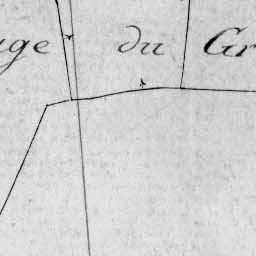 uge du Gr